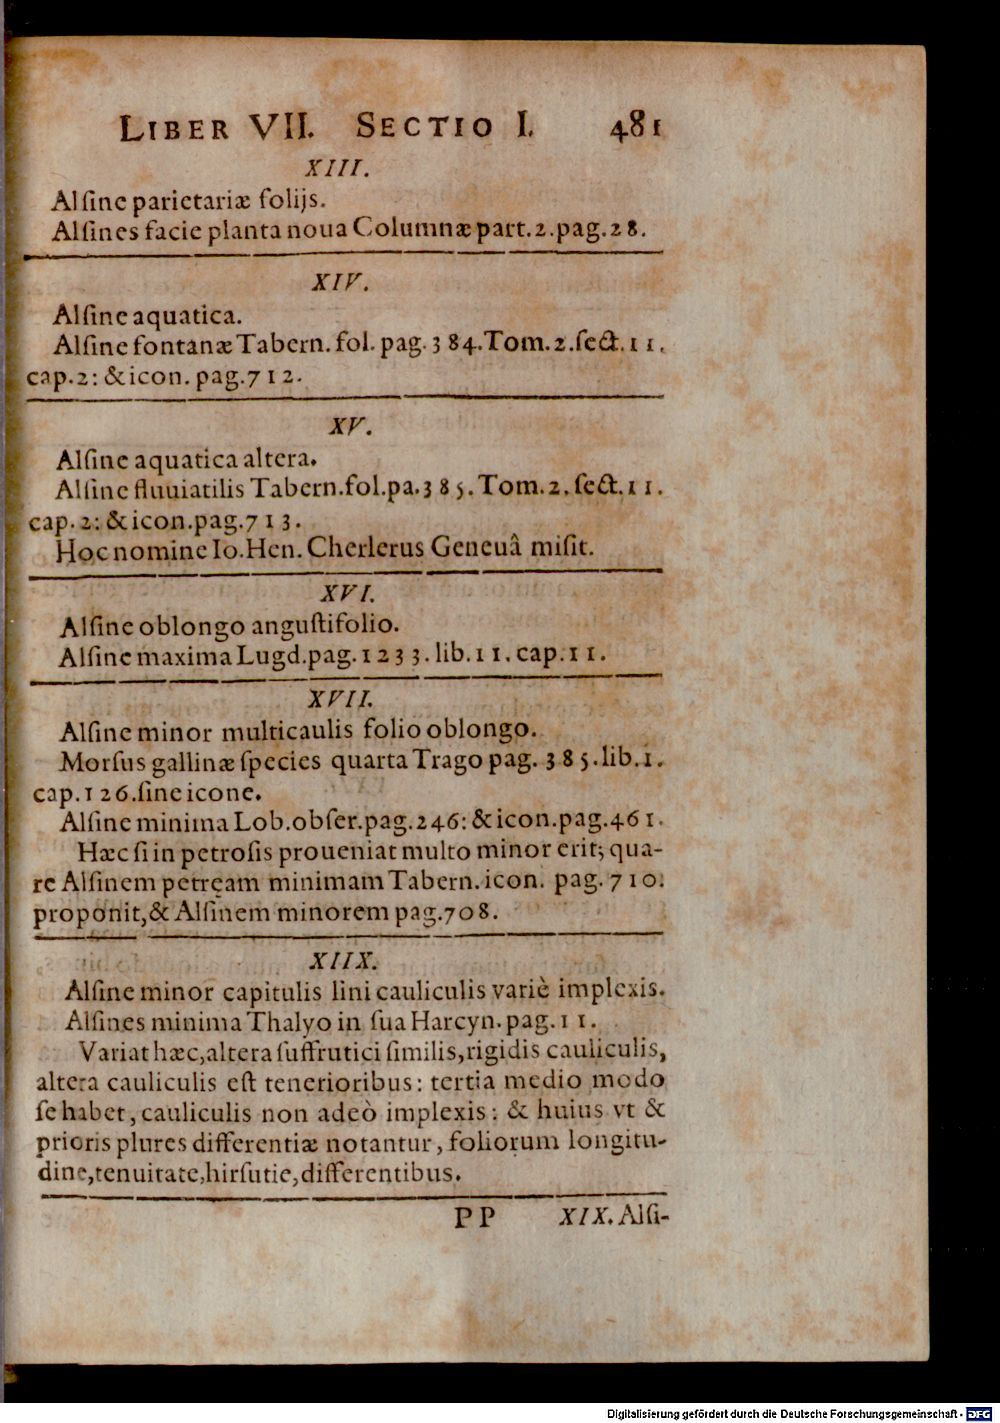 LIBER VII. SECTIO I. 481
XIII.
Alſine parietariæ folijs.
Alſines facie planta noua Columnæ part. 2. pag. 28.
XIV.
Alſine aquatica.
Alſine fontanæ Tabern. fol. pag. 384. Tom. 2. ſect. 11.
cap. 2: & icon. pag. 712.
XV.
Alſine aquatica altera.
Alſine fluuiatilis Tabern. fol. pa. 385. Tom. 2. ſect. 11.
cap. 2: & icon. pag. 713.
Hoc nomine Io. Hen. Cherlerus Geneuâ miſit.
XVI.
Alſine oblongo anguſtifolio.
Alſine maxima Lugd. pag. 1233. lib. 11. cap. 11.
XVII.
Alſine minor multicaulis folio oblongo.
Morſus gallinæ ſpecies quarta Trago pag. 385. lib. 1.
cap. 126. ſine icone.
Alſine minima Lob. obſer. pag. 246: & icon. pag. 461.
Hæc ſi in petroſis proueniat multo minor erit; qua-
re Alſinem petręam minimam Tabern. icon. pag. 710.
proponit, & Alſinem minorem pag. 708.
XIIX.
Alſine minor capitulis lini cauliculis variè implexis.
Alſines minima Thalyo in ſua Harcyn. pag. 11.
Variat hæc, altera ſuffrutici ſimilis, rigidis cauliculis,
altera cauliculis eſt tenerioribus: tertia medio modo
ſe habet, cauliculis non adeò implexis: & huius vt &
prioris plures differentiæ notantur, foliorum longitu-
dine, tenuitate, hirſutie, differentibus.
PP XIX. Alſi-
Digitalisierung gefördert durch die Deutsche Forschungsgemeinschaft - DFG